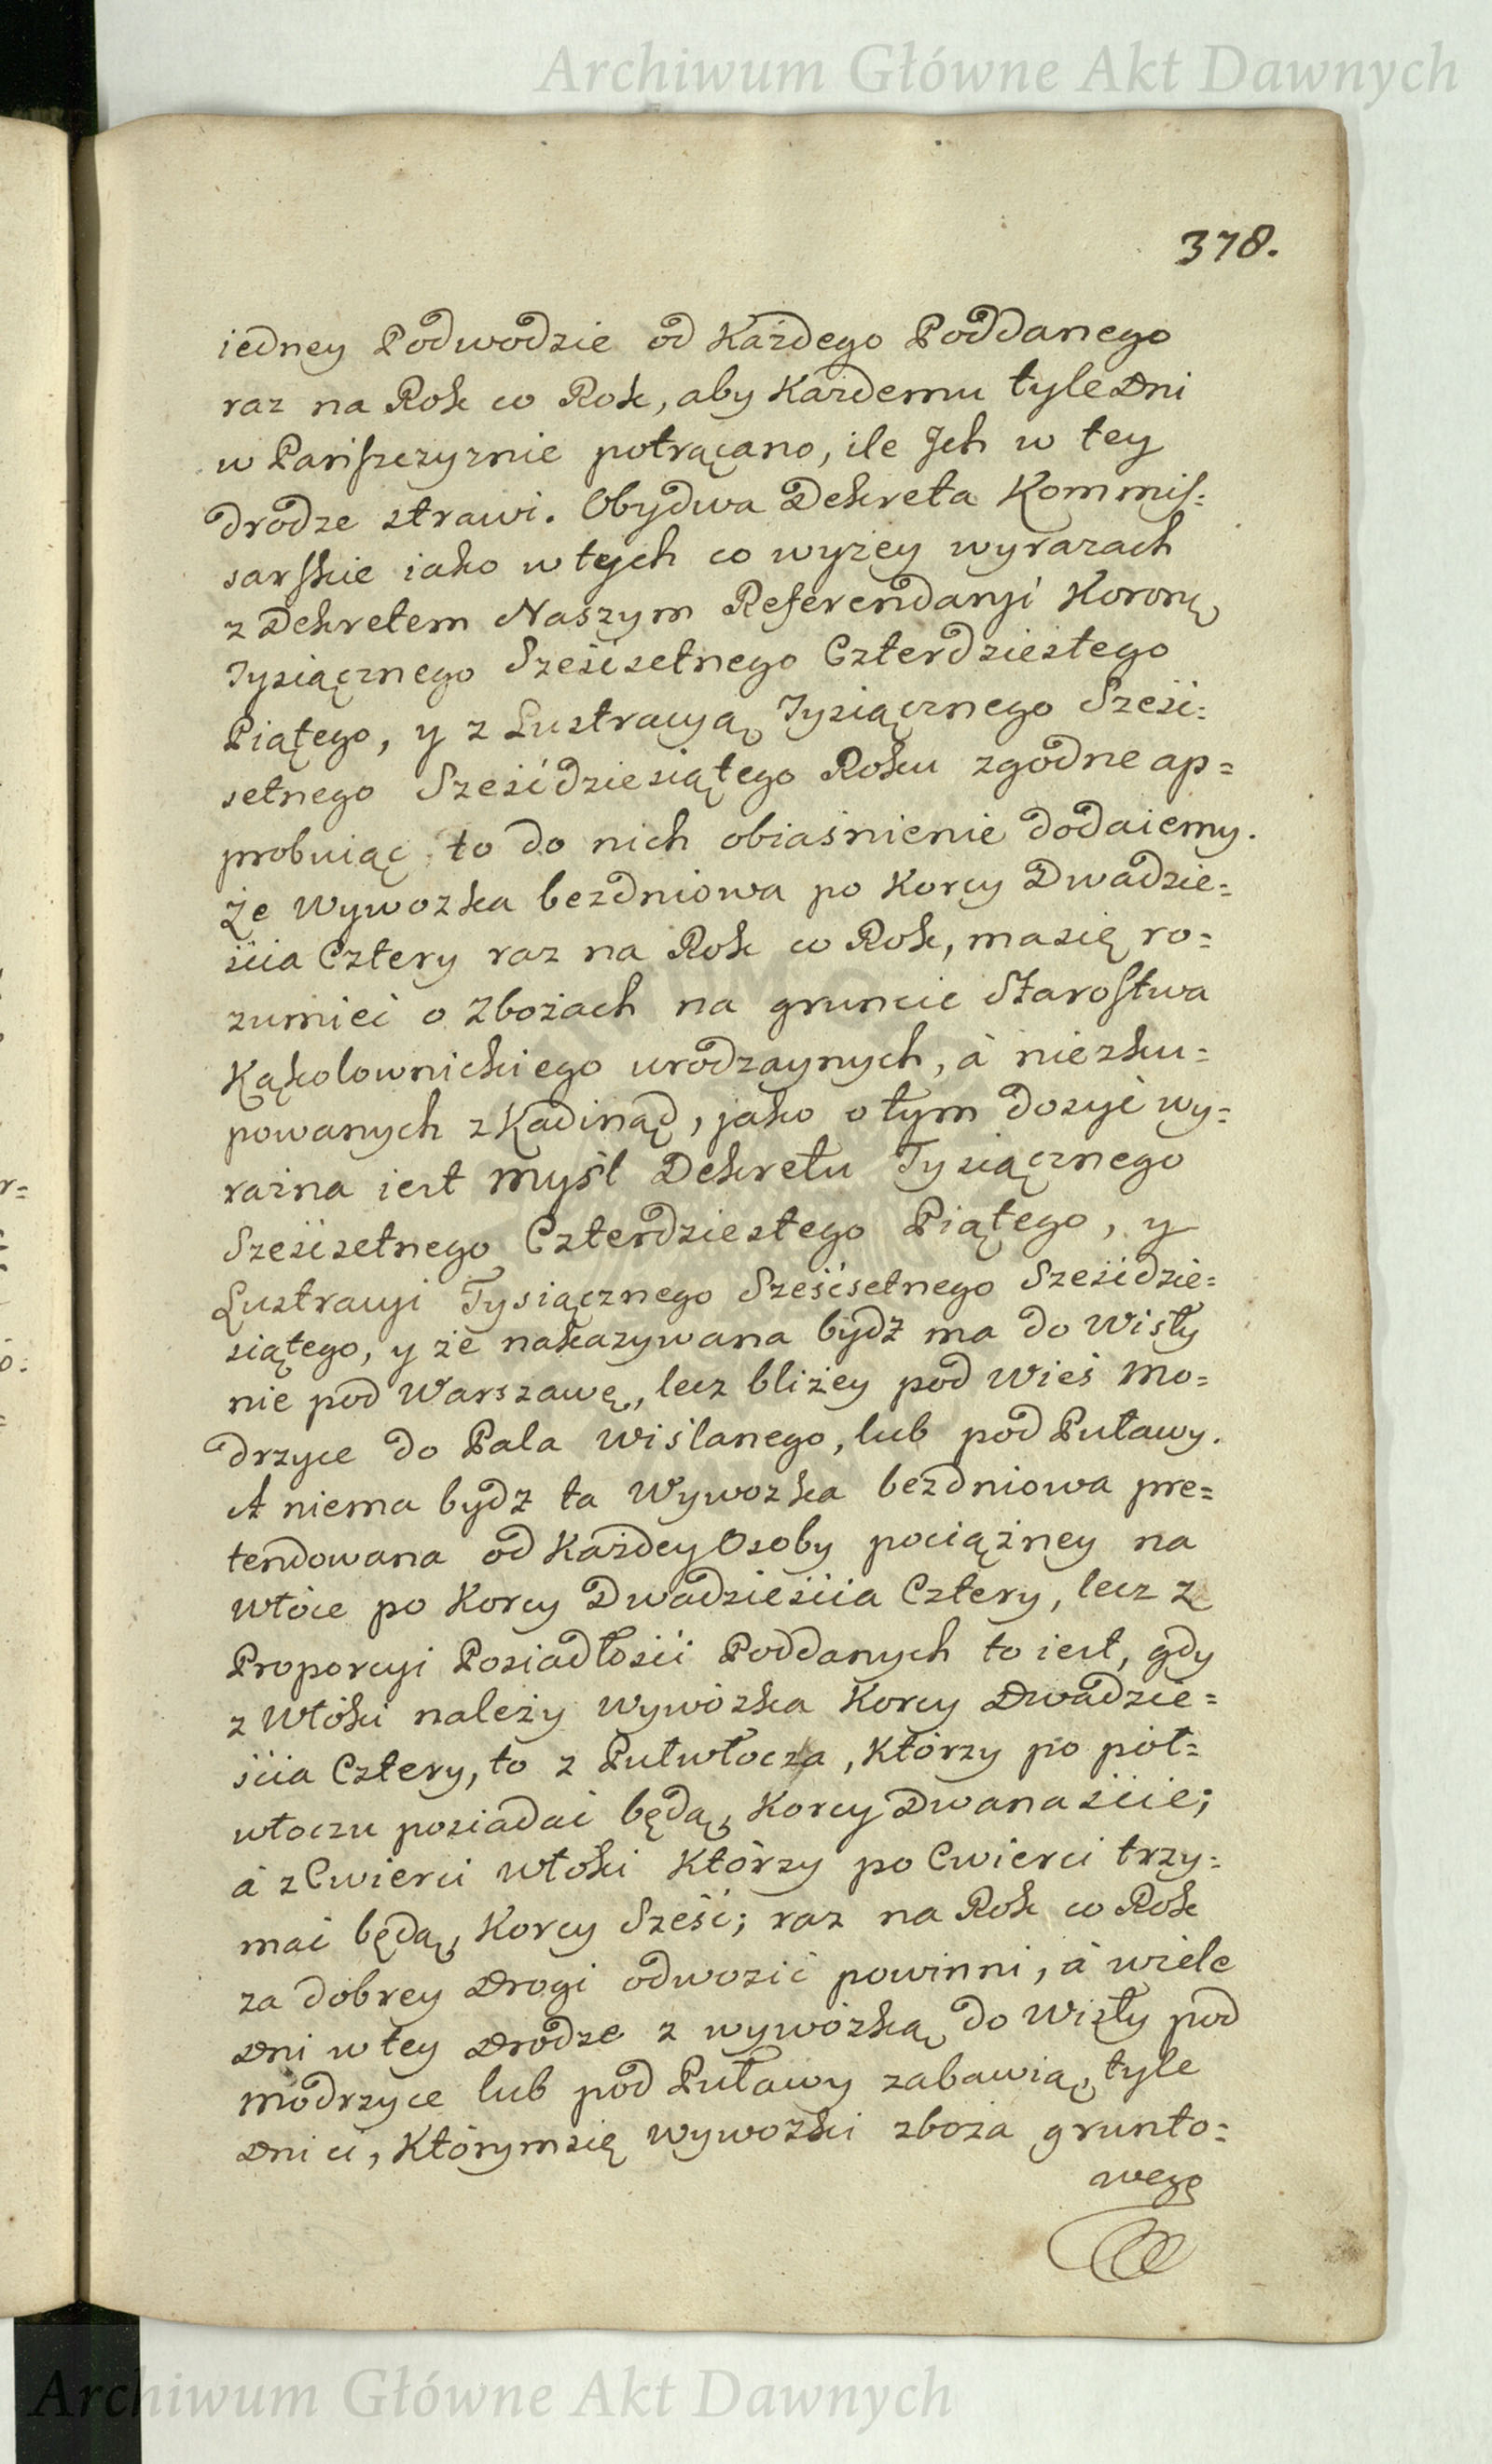 Archiwum Główne Akt Dawnych
378.
iedney Podwodzie od Każdego Poddanego
raz na Rok co Rok, aby Każdemu tyle Dni
w Pańszczyznie potrącano, ile Jch w tey
drodze strawi. Obydwa Dekreta Kommis:
sarskie iako w tych co wyżey wyrazach
z Dekretem Naszym Referendaryi Koronę
Tysiącznego Sześćsetnego Czterdziestego
Piątego, y z Lustracyą Tysiącznego Sześć:
setnego Sześćdziesiątego Roku zgodne ap=
probuiąc to do nich obiaśnienie dodaiemy.
Że Wywozka bezdniowa po Korcy Dwadzie=
ścia Cztery raz na Rok co Rok, ma się ro=
zumieć o Zbożach na gruncie Starostwa
Kąkolownickiego urodzaynych, à niezku=
powanych z Kądinąd, jako o tym dosyć wy=
raźna iest Myśl Dekretu Tysiącznego
Sześćsetnego Czterdziestego Piątego, y
Lustracyi Tysiącznego Sześćsetnego Sześćdzie=
siątego, y że nakazywana bydź ma do Wisły
nie pod Warszawę, lecz bliżey pod Wieś Mo=
drzyce do Pala Wiślanego, lub pod Puławy.
A niema bydź ta Wywozka bezdniowa pre=
tendowana od Każdey Osoby pociążney na
Włóce po Korcy Dwadzieścia Cztery, lecz z
Proporcyi Posiadłości Poddanych to iest, gdy
z Włóki należy Wywózka Korcy Dwadzie=
ścia Cztery, to z Pułwłocza, Którzy po pół=
włoczu posiadać będą, Korcy Dwanaście;
à z Cwierci Włóki Którzy po Cwierci trzy=
mać będą, Korcy Sześć; raz na Rok co Rok
za dobrey Drogi odwozić powinni, à wiele
Dni w tey Drodze z wywózką do Wisły pod
Modrzyce lub pod Puławy zabawią, tyle
Dni ci, Którym się Wywozki zboża grunto=
wego
Archiwum Główne Akt Dawnych